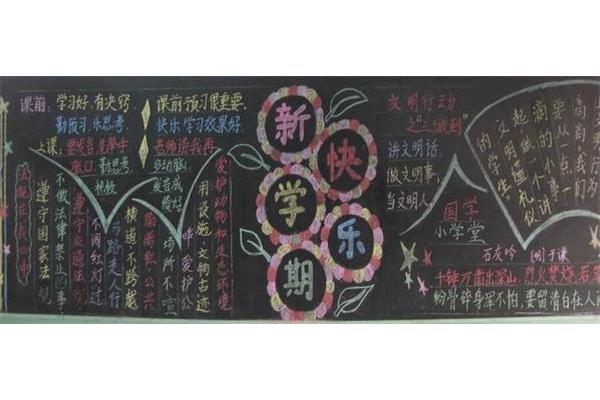 课前: 学习好,有决窍.
勤预习,乐思考.
课前预习很重要,
快乐学习效果好.
上课: 要发言,先举手
老师请我再
张口,勤思考,
多动脑,
积极
发言成
绩好
法规在我心中
遵守国家法规
不做法律禁止的事
遵守交通法规
不闯红灯,过
马路走人行
横道不跨越
隔离栏,公共
场所不喧
哗,爱护公
用设施,文物古迹
爱护动物和生态环境
新学期
快乐
文明行动
之"三做到"
讲文明话,
做文明事,
当文明人.
高尚,我们
要从一点一
起,做
文明懂礼仪
的学生
国学
小学堂
石灰吟 [明]于谦
千锤万凿出深山,烈火焚烧若
粉骨碎身浑不怕,要留清白在人